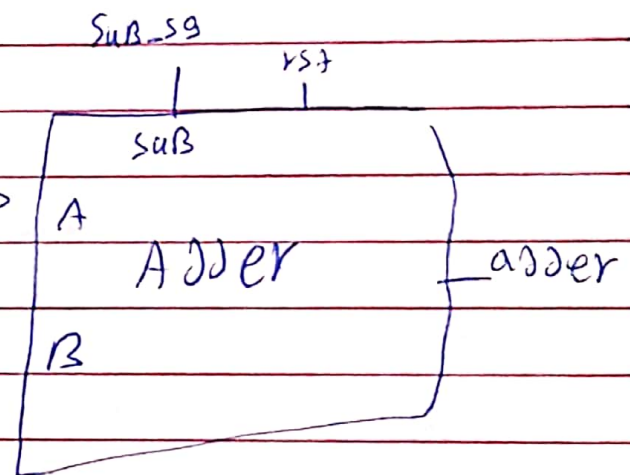 SuB_sg
rst
SuB
A
Adder
adder
B